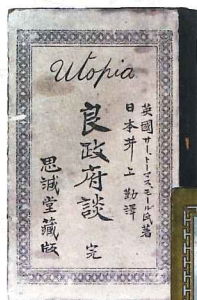 Utopia
英國サー、トーマス、モール氏著
日本井上勤譯
良政府談 完
思誠堂藏版